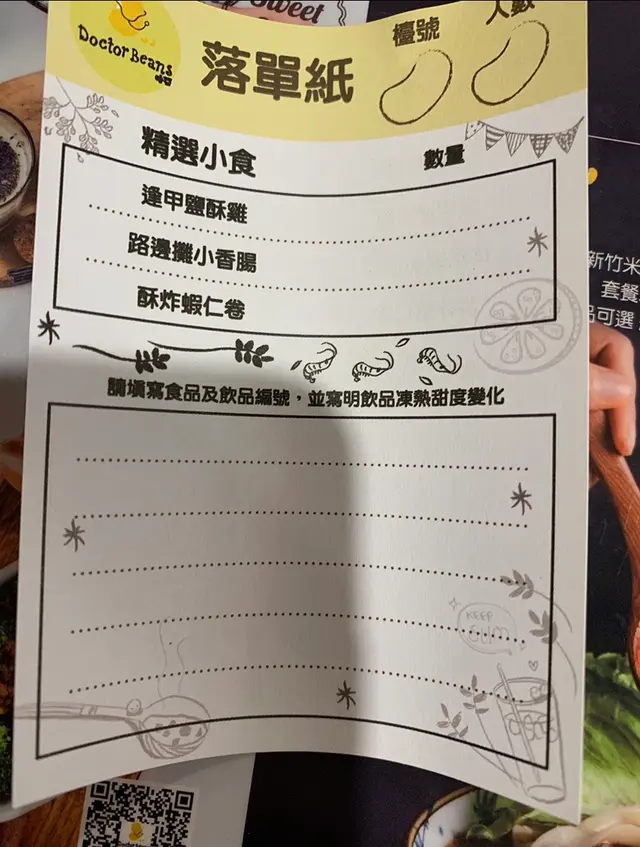 Sweet
Doctor Beans
落單紙
檯號
人數
精選小食
數量
逢甲鹽酥雞
路邊攤小香腸
酥炸蝦仁卷
請填寫食品及飲品編號，並寫明飲品凍熱甜度變化
KEEP
CALM
新竹米
套餐
品可選